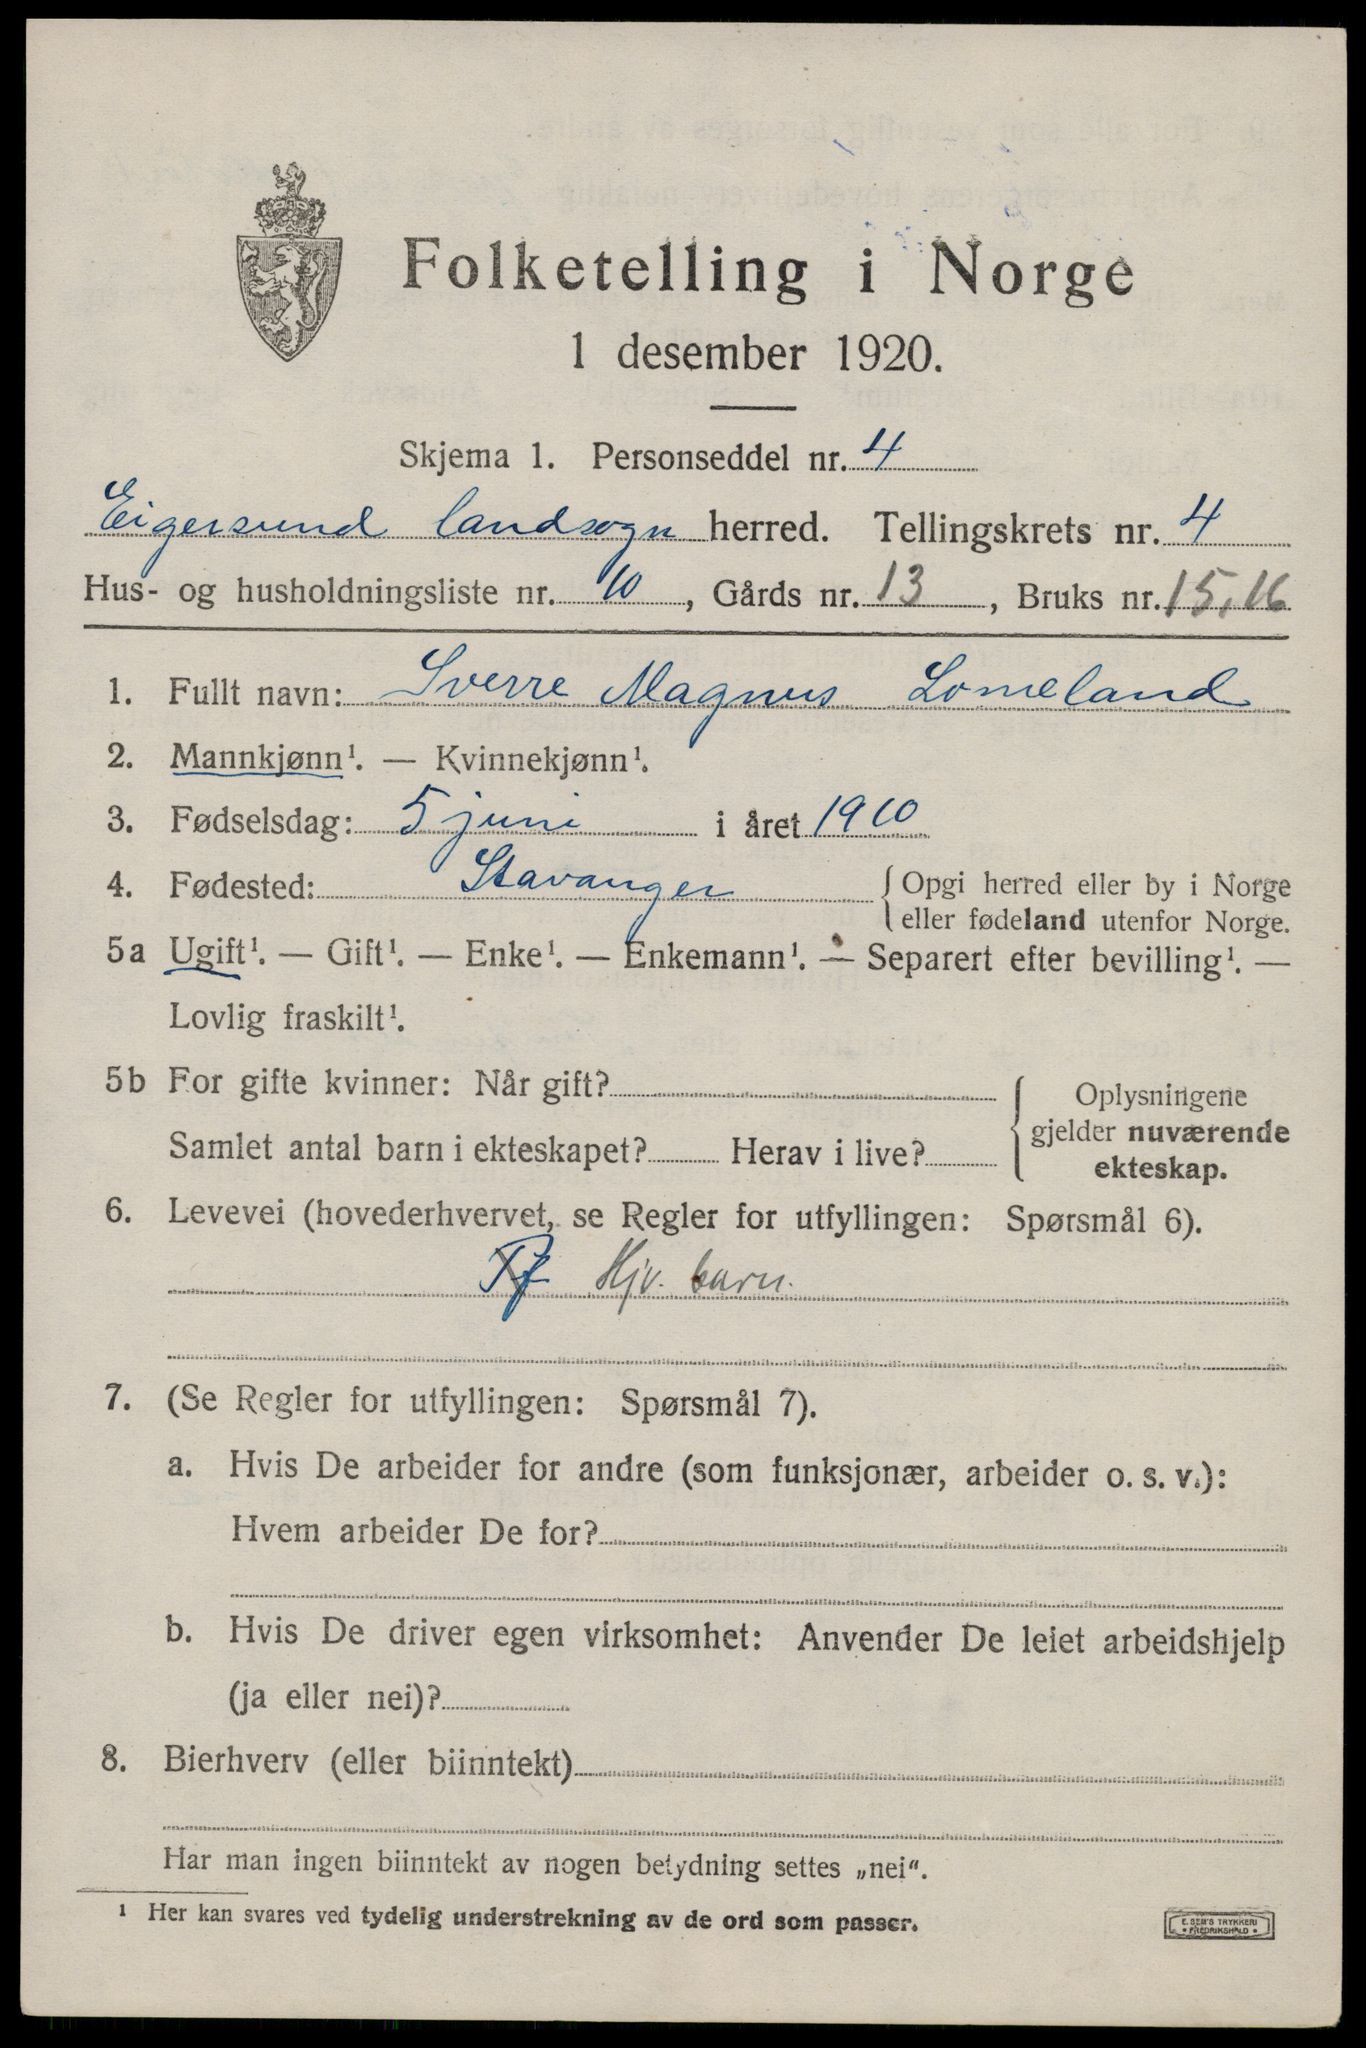 Folketelling i Norge
1 desember 1920.
Skjema 1. Personseddel nr. 4
Eigersund landsogn herred. Tellingskrets nr. 4
Hus- og husholdningsliste nr. 10, Gårds nr. 13, Bruks nr. 15,16
1. Fullt navn: Sverre Magnus Lomeland
2. Mannkjønn¹. — Kvinnekjønn¹.
3. Fødselsdag: 5 juni i året 1910
4. Fødested: Stavanger { Opgi herred eller by i Norge
eller fødeland utenfor Norge.
5a Ugift¹. — Gift¹. — Enke¹. — Enkemann¹. — Separert efter bevilling¹. —
Lovlig fraskilt¹.
5b For gifte kvinner: Når gift?
Samlet antal barn i ekteskapet? Herav i live?
Oplysningene
gjelder nuværende
ekteskap.
6. Levevei (hovederhvervet, se Regler for utfyllingen: Spørsmål 6).
Hjv. barn.
7. (Se Regler for utfyllingen: Spørsmål 7).
a. Hvis De arbeider for andre (som funksjonær, arbeider o. s. v.):
Hvem arbeider De for?
b. Hvis De driver egen virksomhet: Anvender De leiet arbeidshjelp
(ja eller nei)?
8. Bierhverv (eller biinntekt)
Har man ingen biinntekt av nogen betydning settes „nei“.
¹ Her kan svares ved tydelig understrekning av de ord som passer.
E. SEM'S TRYKKERI
• FREDRIKSHALD •